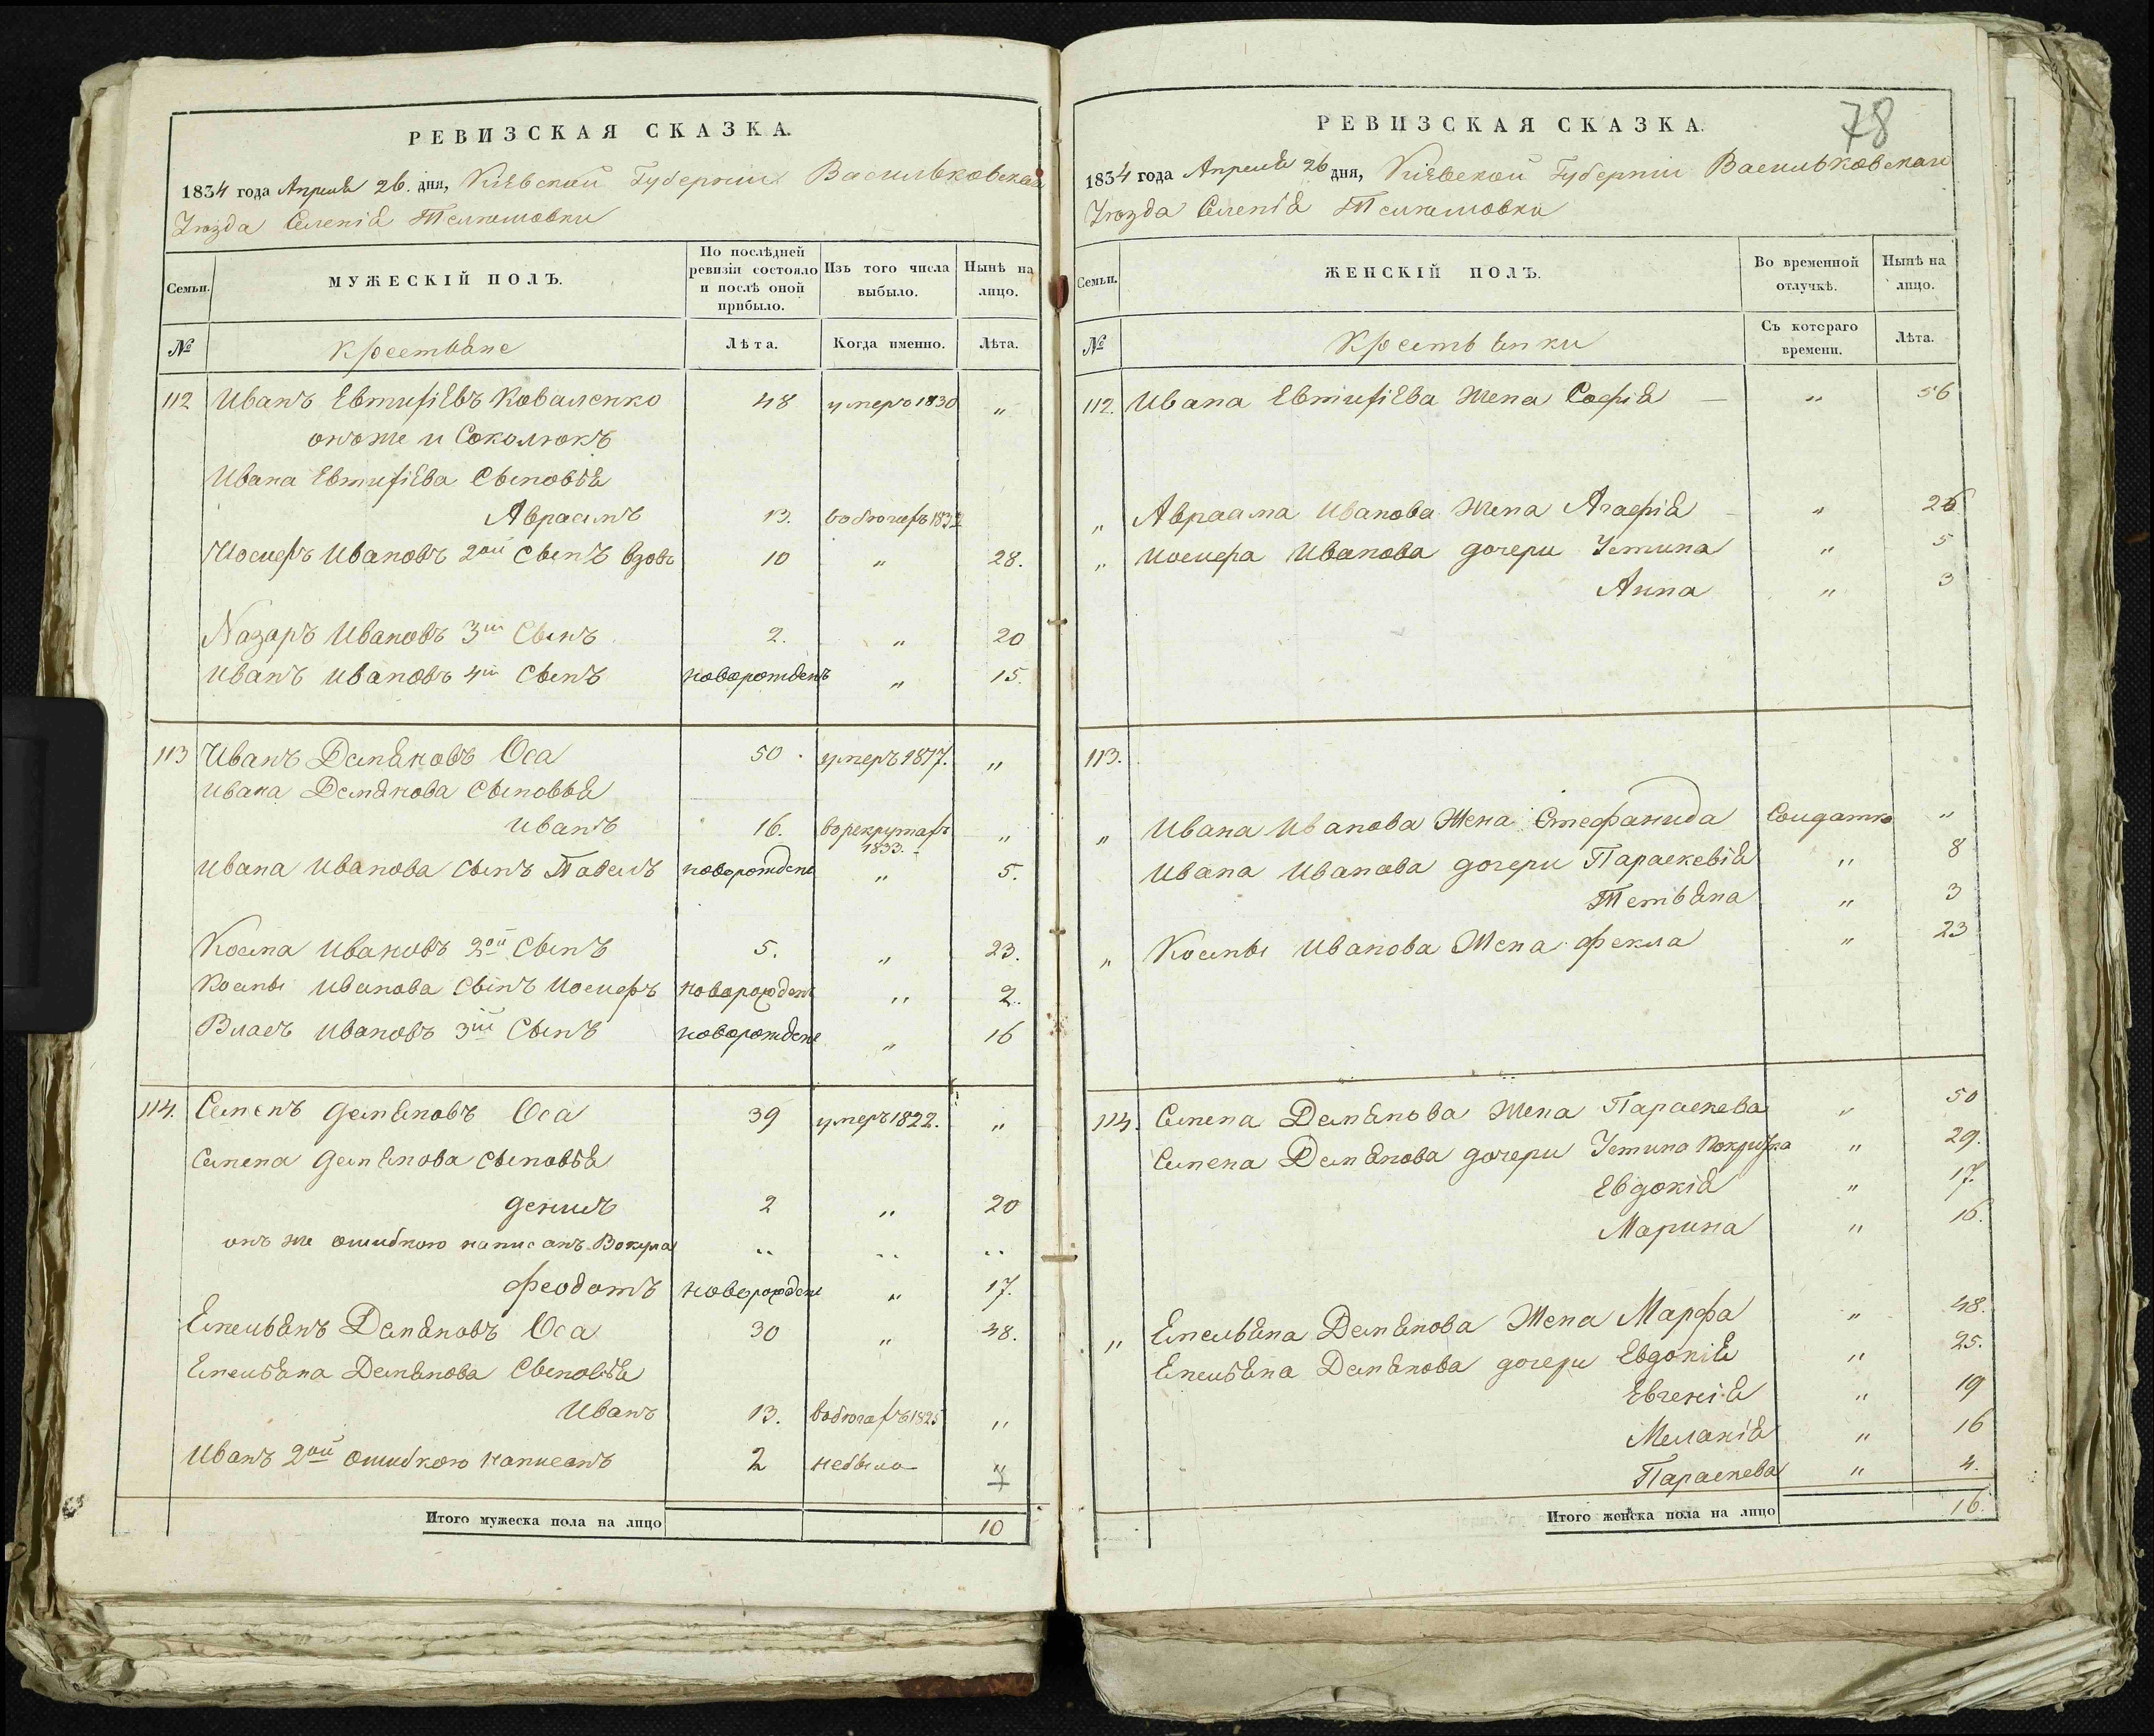 РЕВИЗСКАЯ СКАЗКА.
1834 года Апреля 26. дня, Кіевской Губерніи Васильковскаго
Уѣзда Селенія Телешовки
Семьи. МУЖЕСКІЙ ПОЛЪ. По послѣдней ревизіи состояло и послѣ оной прибыло. Изъ того числа выбыло. Нынѣ на лицо.
№ Крестьяне Лѣта. Когда именно. Лѣта.
112 Иванъ Евтихіевъ Коваленко 48 умеръ 1830 "
онъ же и Соколюкъ
Ивана Евтихіева Сыновья
Авраамъ 13. въ бѣгахъ
Иосифъ Ивановъ 2ой Сынъ вдовъ 10 " 28.
Назаръ Ивановъ 3ій Сынъ 2. " 20
Иванъ Ивановъ 4ый Сынъ новорожденъ " 15.
113 Иванъ Демяновъ Оса 50 умеръ 1817. "
Ивана Демянова Сыновья
Иванъ 16. въ рекрутахъ 1833. "
Ивана Иванова Сынъ Павелъ новорожденъ " 5.
Косма Ивановъ 2ой Сынъ 5. " 23.
Космы Иванова Сынъ Иосифъ новорожденъ " 2.
Власъ Ивановъ 3ій Сынъ новорождене " 16
114. Семенъ Демяновъ Оса 39 умеръ 1822. "
Семена Демянова Сыновья
Денисъ 2 " 20
онъ же ошибкою написанъ Вакула " " "
Феодотъ новорождене " 17.
Емельянъ Демяновъ Оса 30 " 48.
Емельяна Демянова Сыновья
Иванъ 13. въ бѣгахъ 1825 "
Иванъ 2ой ошибкою написанъ 2 небыло "
Итого мужеска пола на лицо 10
78
РЕВИЗСКАЯ СКАЗКА.
1834 года Апреля 26 дня, Кіевской Губерніи Васильковскаго
Уѣзда Селенія Телешовки
Семьи. ЖЕНСКІЙ ПОЛЪ. Во временной отлучкѣ. Нынѣ на лицо.
№ Крестьянки Съ котораго времени. Лѣта.
112. Ивана Евтихіева Жена Софія " 56
" Авраама Иванова Жена Агафія " 26
" Иосифа Иванова дочери Устина " 5
Анна " 3
113.
" Ивана Иванова Жена Стефанида Солдатка "
Ивана Иванова дочери Параскевія " 8
Тетьяна " 3
" Космы Иванова Жена Фекла " 23
114. Семена Демянова Жена Параскева " 50
Семена Демянова дочери Устина Покритка " 29.
Евдокія " 17.
Марина " 16.
" Емельяна Демянова Жена Марфа " 48.
Емельяна Демянова дочери Евдокія " 25.
Евгенія " 19
Меланія " 16
Параскева " 4.
Итого женска пола на лицо 16.